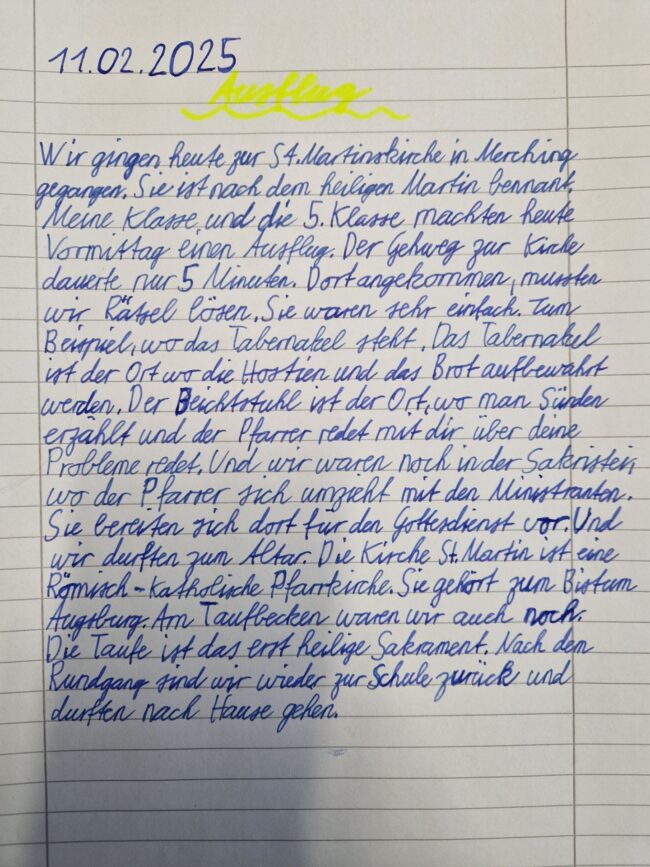 11.02.2025
Ausflug
Wir gingen heute zur St. Martinskirche in Merching
gegangen. Sie ist nach dem heiligen Martin bennant.
Meine Klasse und die 5. Klasse machten heute
Vormittag einen Ausflug. Der Gehweg zur Kirche
dauerte nur 5 Minuten. Dort angekommen, mussten
wir Rätsel lösen. Sie waren sehr einfach. Zum
Beispiel, wo das Tabernakel steht. Das Tabernakel
ist der Ort wo die Hostien und das Brot aufbewahrt
werden. Der Beichtstuhl ist der Ort, wo man Sünden
erzählt und der Pfarrer redet mit dir über deine
Probleme redet. Und wir waren noch in der Sakristei,
wo der Pfarrer sich umzieht mit den Ministranten.
Sie bereiten sich dort für den Gottesdienst vor. Und
wir durften zum Altar. Die Kirche St. Martin ist eine
Römisch-Katholische Pfarrkirche. Sie gehört zum Bistum
Augsburg. Am Taufbecken waren wir auch noch.
Die Taufe ist das erst heilige Sakrament. Nach dem
Rundgang sind wir wieder zur Schule zurück und
durften nach Hause gehen.